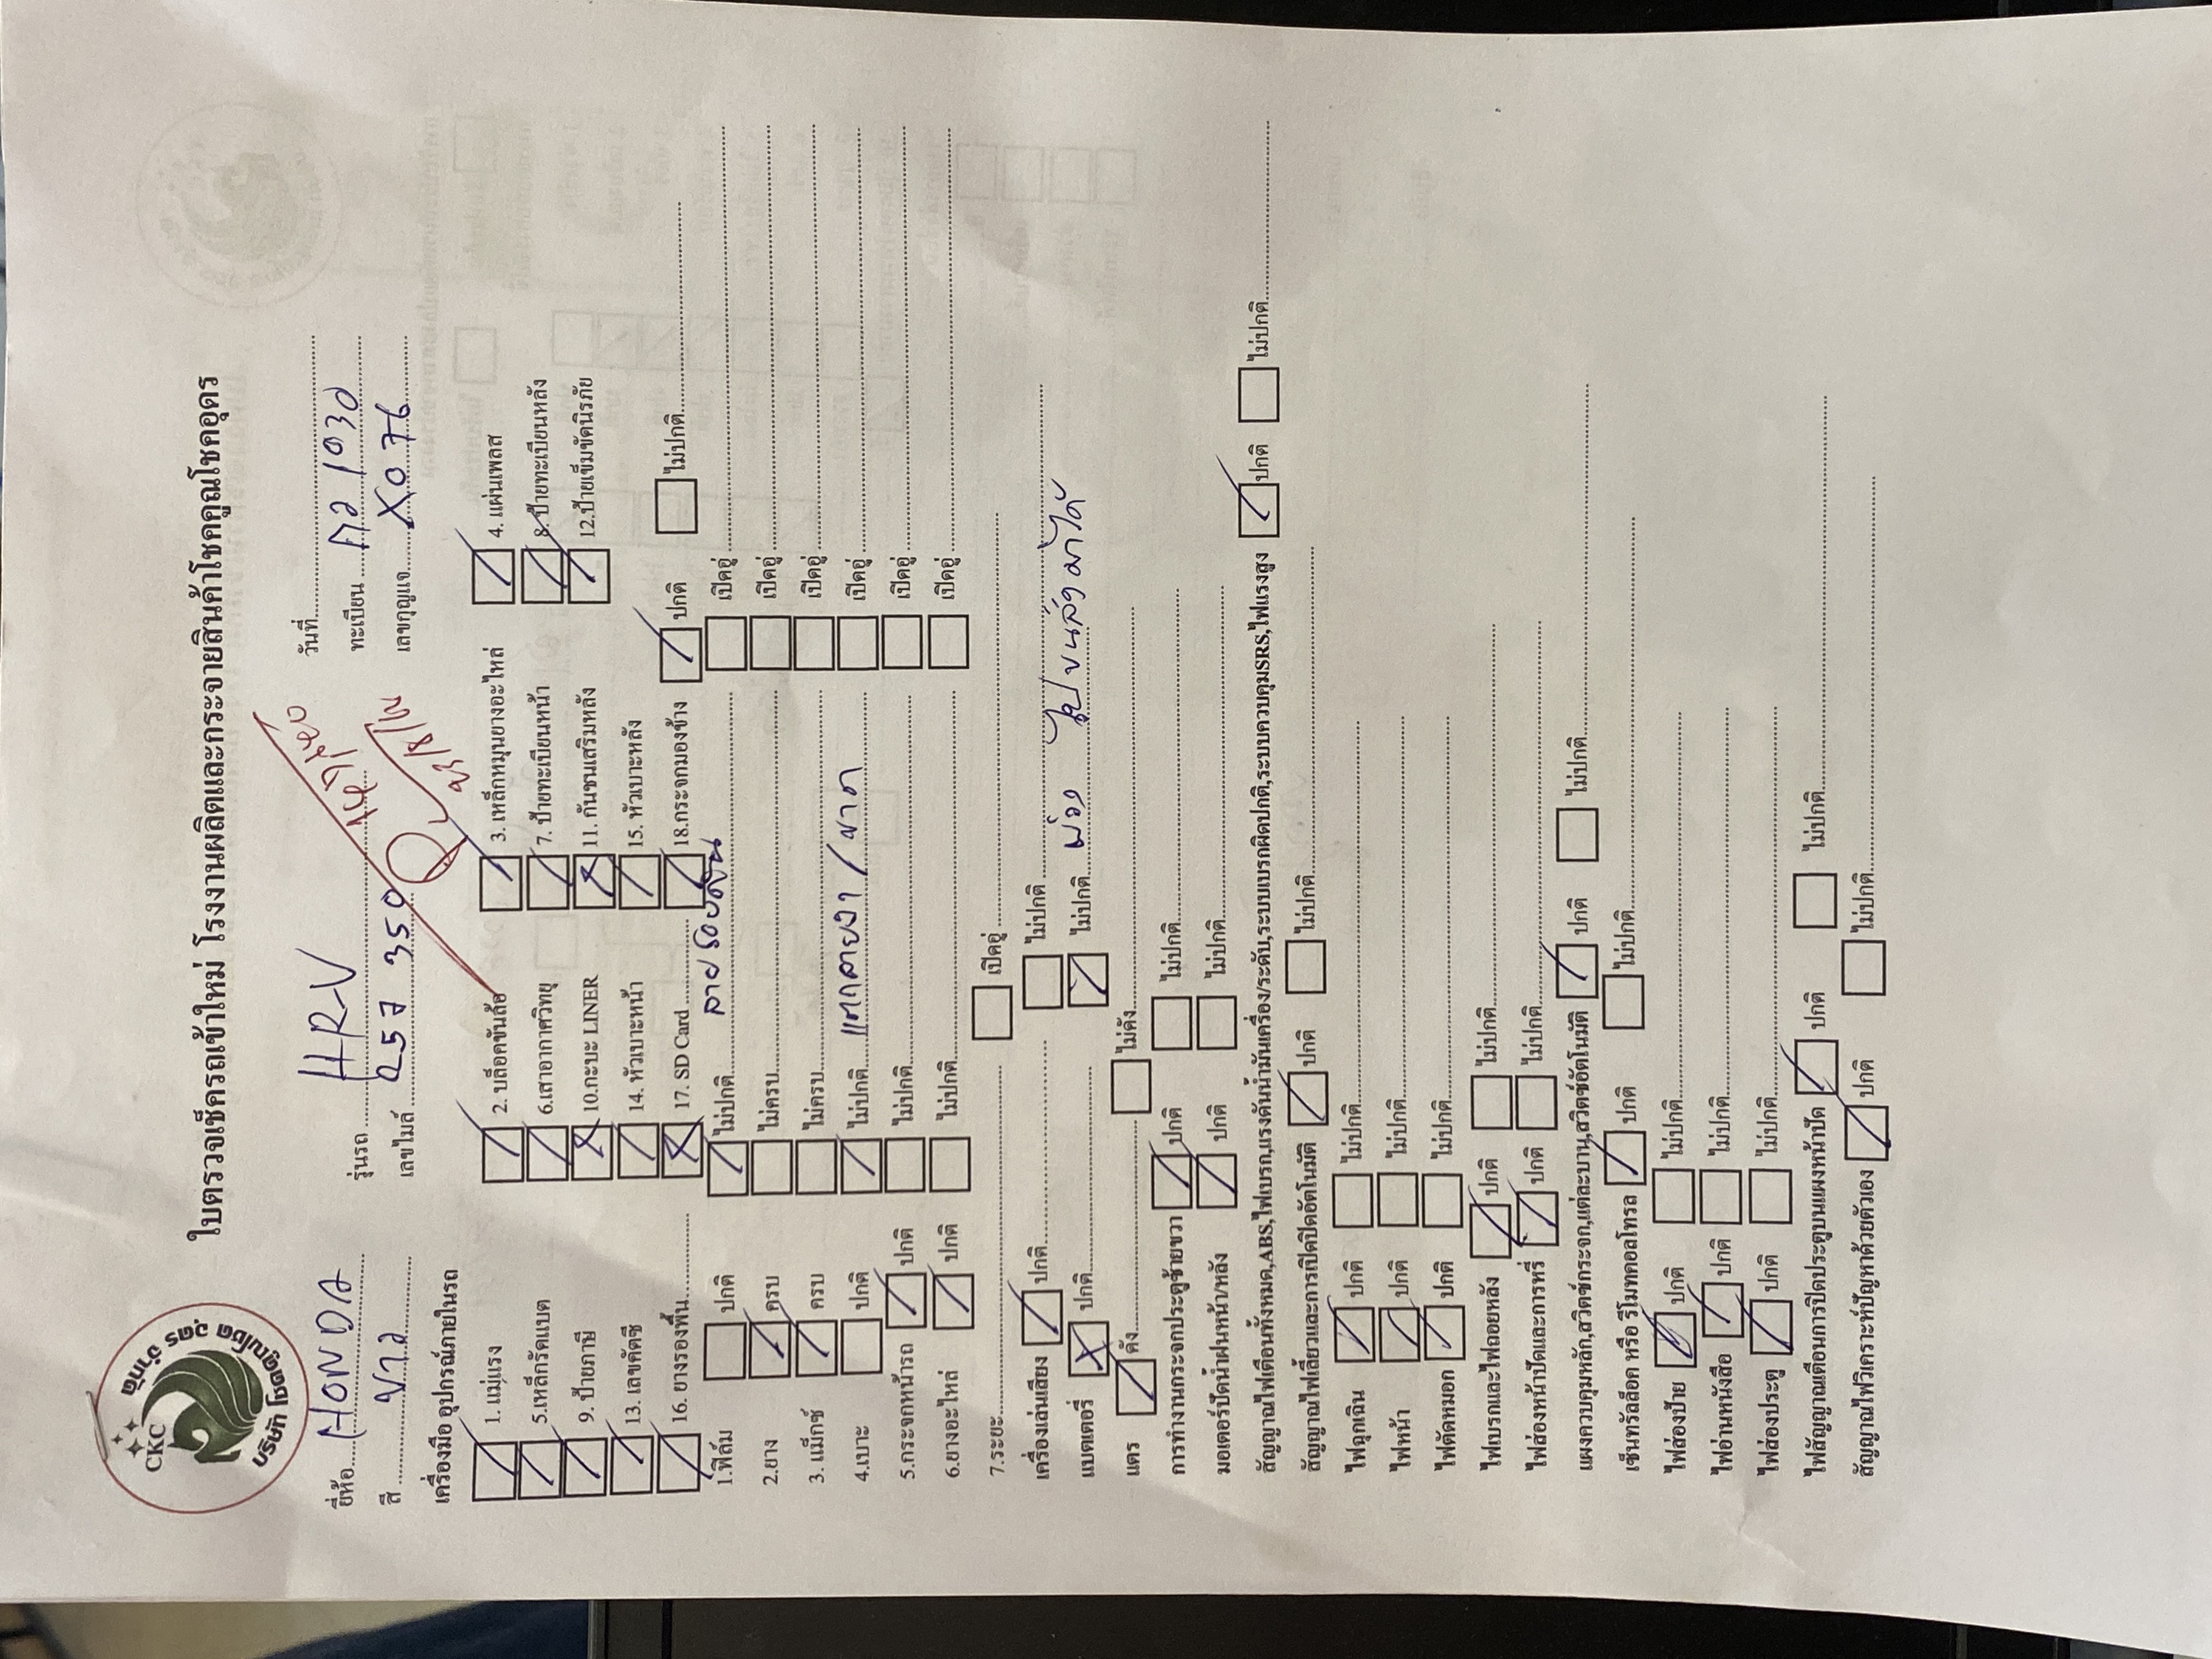 CKC
บริษัท โชคคูณโชค อุดร จำกัด
ใบตรวจเช็ครถเข้าใหม่ โรงงานผลิตและกระจายสินค้าโชคคูณโชคอุดร
วันที่
ยี่ห้อ HONDA รุ่นรถ HR-V ทะเบียน 1930
สี ขาว เลขไมล์ 257 350 เลขกุญแจ X076
เครื่องมือ อุปกรณ์ภายในรถ
1. แม่แรง 2. บล็อคขันล้อ 3. เหล็กหมุนยางอะไหล่ 4. แผ่นเพลส
5.เหล็กรัดแบต 6.เสาอากาศวิทยุ 7. ป้ายทะเบียนหน้า 8. ป้ายทะเบียนหลัง
9. ป้ายภาษี 10.กะบะ LINER 11. กันชนเสริมหลัง 12.ป้ายเข็มขัดนิรภัย
13. เลขคัตซี 14. หัวเบาะหน้า 15. หัวเบาะหลัง
16. ยางรองพื้น 17. SD Card 18.กระจกมองข้าง ปกติ ไม่ปกติ
1.ฟิล์ม ปกติ ไม่ปกติ ลายรอบคัน เปิดอู่
2.ยาง ครบ ไม่ครบ เปิดอู่
3. แม็กซ์ ครบ ไม่ครบ เปิดอู่
4.เบาะ ปกติ ไม่ปกติ แตกลายงา / ขาด เปิดอู่
5.กระจกหน้ารถ ปกติ ไม่ปกติ เปิดอู่
6.ยางอะไหล่ ปกติ ไม่ปกติ เปิดอู่
7.ระยะ เปิดอู่
เครื่องเล่นเสียง ปกติ ไม่ปกติ
แบตเตอรี่ ปกติ ไม่ปกติ ขนส่งมาได้
แตร ดัง ไม่ดัง
การทำงานกระจกประตูซ้ายขวา ปกติ ไม่ปกติ
มอเตอร์ปัดน้ำฝนหน้า/หลัง ปกติ ไม่ปกติ
สัญญาณไฟเตือนทั้งหมด,ABS,ไฟเบรก,แรงดันน้ำมันเครื่อง/ระดับ,ระบบเบรกผิดปกติ,ระบบควบคุมSRS,ไฟแรงสูง ปกติ ไม่ปกติ
สัญญาณไฟเลี้ยวและการเปิดปิดอัตโนมัติ ปกติ ไม่ปกติ
ไฟฉุกเฉิน ปกติ ไม่ปกติ
ไฟหน้า ปกติ ไม่ปกติ
ไฟตัดหมอก ปกติ ไม่ปกติ
ไฟเบรกและไฟถอยหลัง ปกติ ไม่ปกติ
ไฟส่องหน้าปัดและการหรี่ ปกติ ไม่ปกติ
แผงควบคุมหลัก,สวิตช์กระจก,แต่ละบาน,สวิตช์อัตโนมัติ ปกติ ไม่ปกติ
เซ็นทรัลล็อค หรือ รีโมทคอลโทรล ปกติ ไม่ปกติ
ไฟส่องป้าย ปกติ ไม่ปกติ
ไฟอ่านหนังสือ ปกติ ไม่ปกติ
ไฟส่องประตู ปกติ ไม่ปกติ
ไฟสัญญาณเตือนการปิดประตูบนแผงหน้าปัด ปกติ ไม่ปกติ
สัญญาณไฟวิเคราะห์ปัญหาด้วยตัวเอง ปกติ ไม่ปกติ